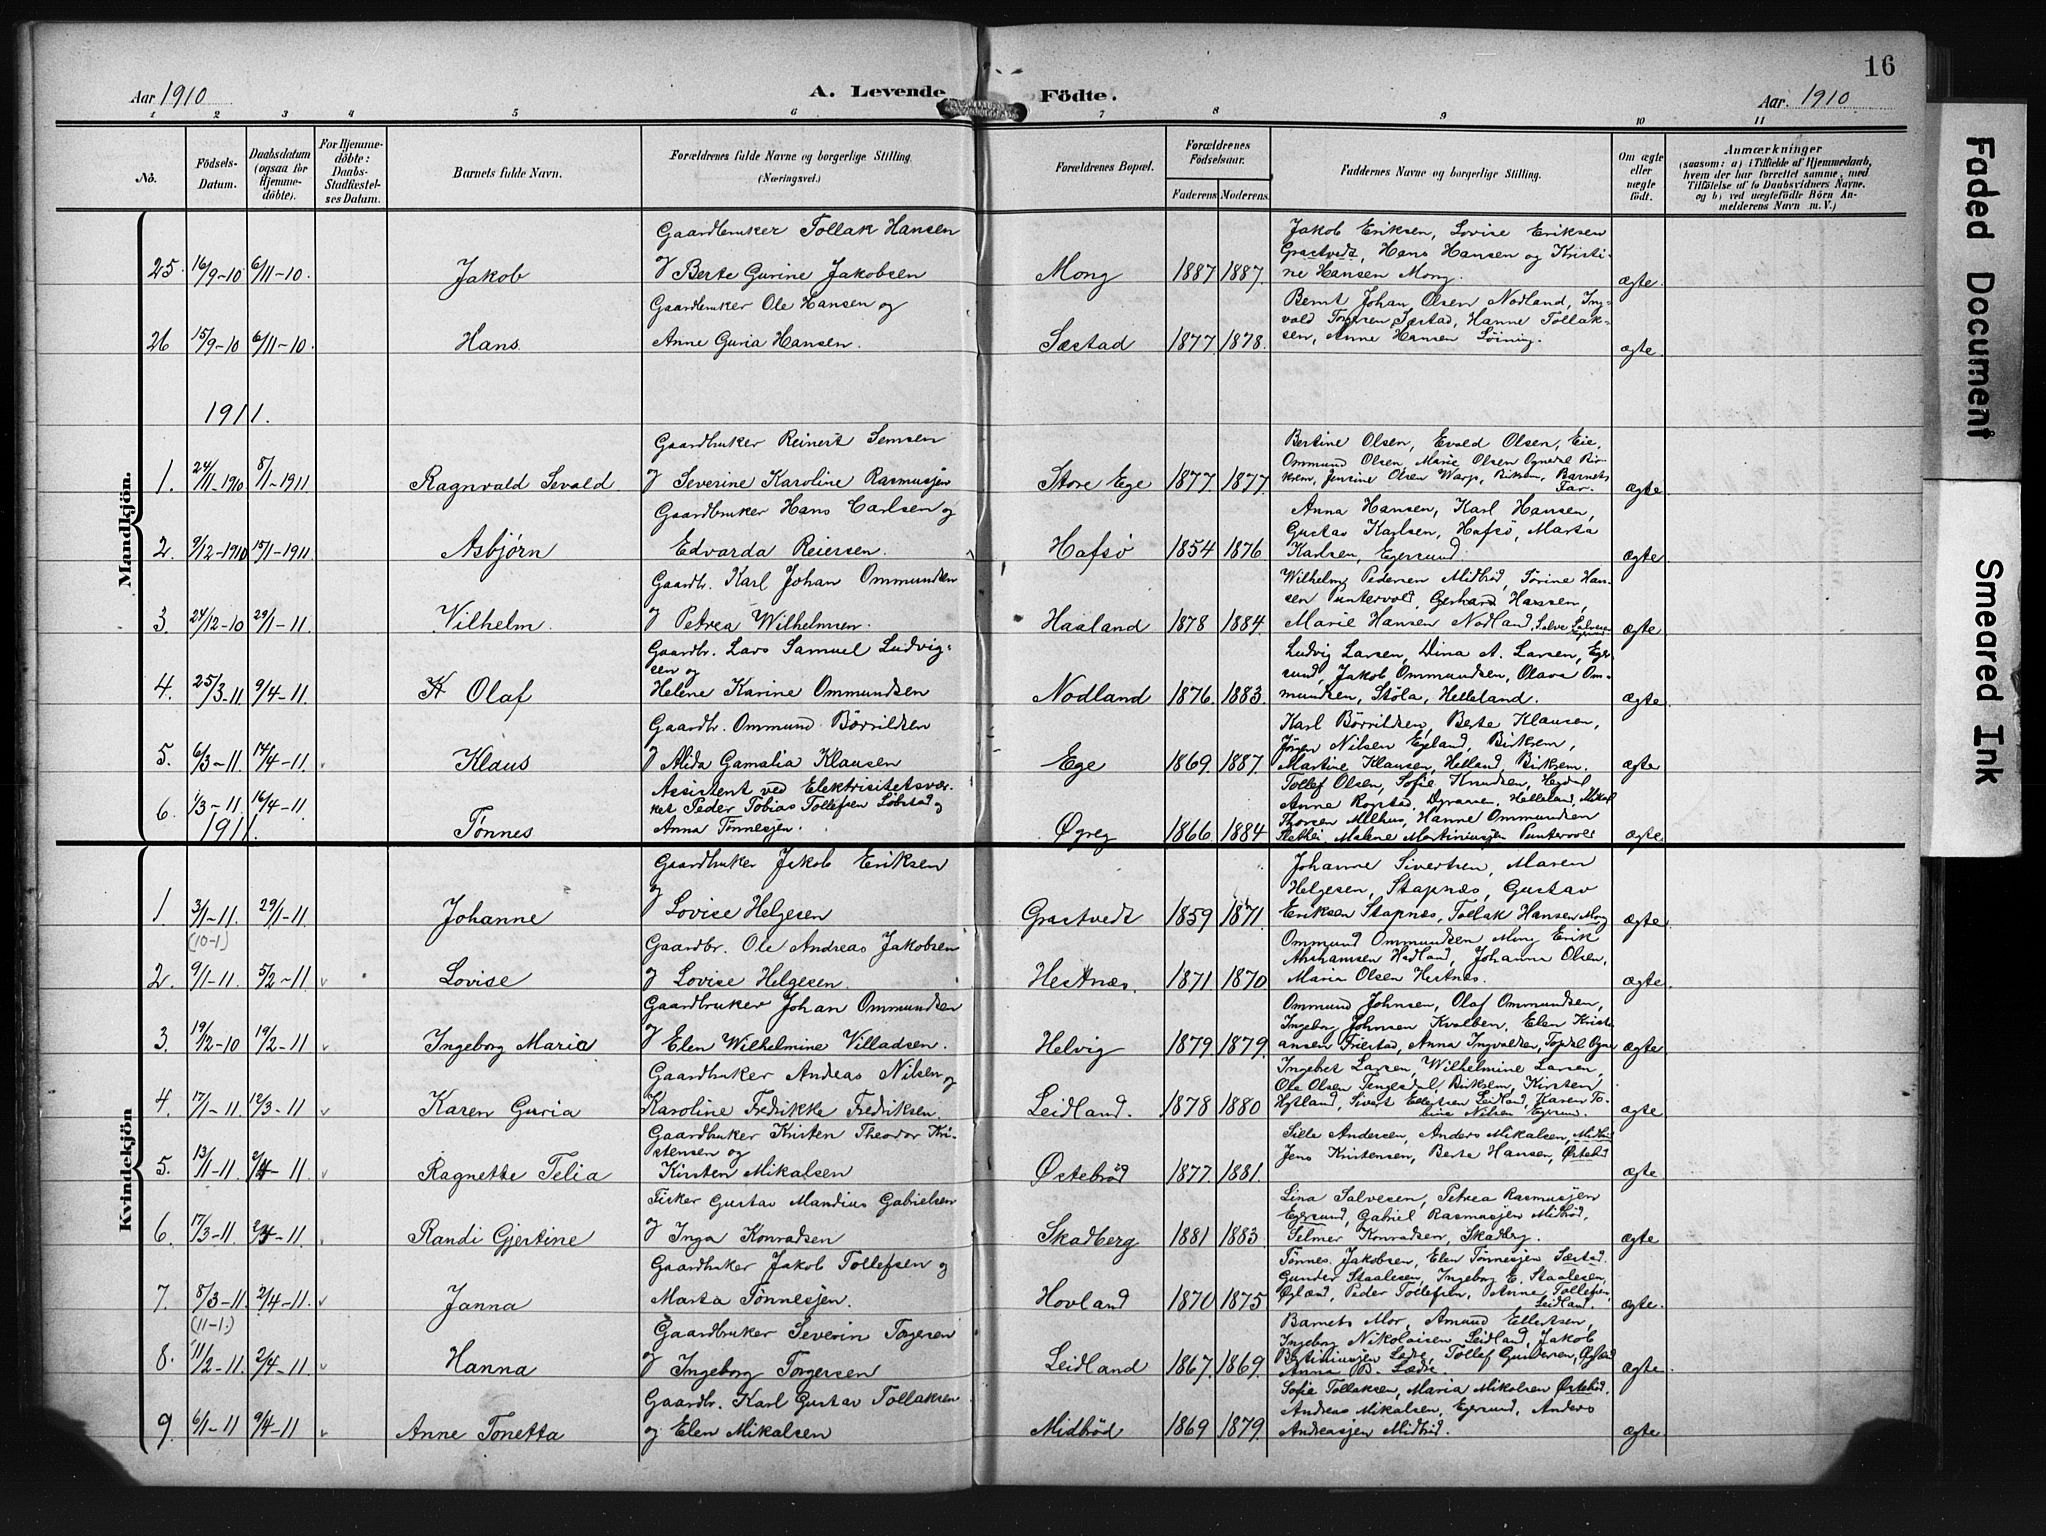 16
Aar 1910
A. Levende Födte.
Aar 1910
1 2 3 4 5 6 7 8 9 10 11
No.
Födsels-Datum.
Daabsdatum (ogsaa for Hjemmedöbte).
For Hjemmedöbte: Daabs-Stadfæstelses Datum.
Barnets fulde Navn.
Forældrenes fulde Navne og borgerlige Stilling.
(Næringsvei.)
Forældrenes Bopæl.
Forældrenes Födselsaar.
Faderens Moderens.
Faddernes Navne og borgerlige Stilling.
Om ægte eller uægte födt.
Anmærkninger
(saasom: a) i Tilfælde af Hjemmedaab,
hvem der har forrettet samme, med
Tilföielse af to Daabsvidners Navne,
og b) ved uægtefödte Börn An-
melderens Navn m. V.)
Mandkjön.
25. 16/9-10 6/11-10. Jakob
Gaardbruker Tollak Hansen
og Berte Gurine Jakobsen
Mong 1887. 1887.
Jakob Eriksen, Lovise Eriksen
Grastvedt, Hans Hansen og Kristi-
ne Hansen Mong.
ægte.
26 15/9-10 6/11-10. Hans
Gaardbruker Ole Hansen og
Anne Guria Hansen.
Sæstad 1877. 1878.
Bernt Johan Olsen Nodland, Ing-
vald Torgersen Sæstad, Hanne Tollak-
sen, Anne Hansen
ægte.
1911.
1. 24/11-1910 8/1-1911 Ragnvald Sevald
Gaardbruker Reinert Semsen
og Severine Karoline Rasmusjen
Store Ege 1877. 1877.
Bertine Olsen, Evald Olsen, Eie,
Ommund Olsen, Marie Olsen Ognedal Bir-
krem, Jensine Olsen Warp, Birkrem, Barnets
Far.
ægte.
2. 9/12-1910 15/1-1911. Asbjørn
Gaardbruker Hans Carlsen og
Edvarda Reiersen.
Hafsø 1854 1876
Anna Hansen, Karl Hansen,
Gustav Karlsen, Hafsø, Marta
Karlsen, Egersund.
ægte
3. 24/12-10 29/1-11. Vilhelm.
Gaardbr. Karl Johan Ommundsen
og Petrea Wilhelmsen.
Haaland 1878 1884.
Wilhelm Pedersen Midbrød, Tørine Han-
sen Puntervold, Gerhard Hansen,
Marie Hansen Nodland, Salve Salvesen
Egersund
ægte.
4. 25/3-11. 9/4-11. Olaf
Gaardbr. Lars Samuel Ludvig-
sen og
Helene Karine Ommundsen
Nodland 1876. 1883.
Ludvig Larsen, Dina A. Larsen, Eger-
sund, Jakob Ommundsen, Olava Om-
mundsen, Støla, Helleland.
ægte.
5. 6/3-11. 14/4-11. Klaus
Gaardbr. Ommund Børrildsen
og Alida Gamalia Klausen
Ege 1869. 1887.
Karl Børrildsen, Berte Klausen,
Jørgen Nilsen Egeland, Birkrem,
Martine Klausen, Helland, Birkrem.
ægte
6. 1/3-11. 16/4-11. Tønnes
Assistent ved Elektrisitetsvær-
ket Peder Tobias Tollefsen Løbstad og
Anna Tønnesjen.
Øgrey 1866 1884
Tollef Olsen, Sofie Knudsen, Hegdal
Anne Rogstad, Helleland, Mikal
Thorsen Melhus, Hanne Ommundsen
Malene Martiniusjen Puntervol
ægte.
1911.
Kvindekjön
1 3/1-11. 29/1-11 Johanne
(10-1)
Gaardbruker Jakob Eriksen
og
Lovise Helgesen
Grastvedt 1859 1871.
Johanne Sivertsen, Maren
Helgesen, Stapnæs, Gustav
Eriksen Stapnæs, Tollak Hansen Mong
ægte
2. 9/1-11. 5/2-11 Lovise
Gaardbr. Ole Andreas Jakobsen
og Lovise Helgesen.
Hestnæs. 1871 1870
Ommund Ommundsen Mong Erik
Abrahamsen Hadland, Johanna Olsen,
Maria Olsen Hestnæs.
ægte.
3. 19/2-10 19/2-11. Ingeborg Maria
Gaardbruker Johan Ommundsen
og Elen Wilhelmine Villadsen.
Helvig 1879 1879.
Ommund Johnsen, Olaf Ommundsen,
Ingeborg Johnsen Kvalben, Elen Kristi-
ansen Frestad, Anna Ingvaldsen, Topdal
ægte.
4. 17/1-11. 12/3-11 Karen Guria
Gaardbruker Andreas Nilsen og
Karoline Fredrikke Fredriksen.
Leidland. 1878 1880
Ingebret Larsen, Wilhelmine Larsen,
Ole Olsen Tengesdal, Birkrem, Kirsten
Hytland, Sivert Ellertsen Leidland, Karen To-
bine Nilsen Egersund.
ægte
5. 13/1-11. 2/4-11 Ragnette Telia
Gaardbruker Kristen Theodor Kri-
stensen og
Kirsten Mikalsen
Østebrød 1877. 1881.
Sille Andersen, Anders Mikalsen, Midbrød
Jens Kristensen, Berte Hansen, Østebrød
ægte
6. 17/3-11. 2/4-11 Randi Gjertine
Fisker Gustav Mandius Gabrielsen
og Inga Konradsen
Skadberg 1881 1883.
Lina Salvesen, Petrea Rasmusjen
Egersund, Gabriel Rasmusjen Midbrød,
Selmer Konradsen, Skadberg.
ægte
7. 8/3-11. 2/4-11. Janna
(11-1.)
Gaardbruker Jakob Tollefsen og
Marta Tønnesjen.
Hovland 1870 1875
Tønnes Jakobsen, Elen Tønnesjen Sæstad.
Gunder Staalesen, Ingeborg E. Staalesen,
Øgland, Peder Tollefsen, Anne Tollefsen,
Leidland.
ægte.
8. 11/2-11. 2/4-11 Hanna
Gaardbruker Severin Torgersen
og Ingeborg Torgersen
Leidland 1867. 1869.
Barnets Mor, Amund Ellertsen,
Ingeborg Nikolaisen Leidland, Jakob
Tollef Gundersen, Øgland
Anna B.
ægte
9. 6/1-11 9/4-11 Anne Tonetta
Gaardbr. Karl Gustav Tollaksen
og Elen Mikalsen
Midbrød 1869 1879.
Sofie Tollaksen, Maria Mikalsen Østebrød.
Andreas Mikalsen, Egersund, Anders
Andreasjen Midbrød.
ægte
Faded Document
Smeared Ink